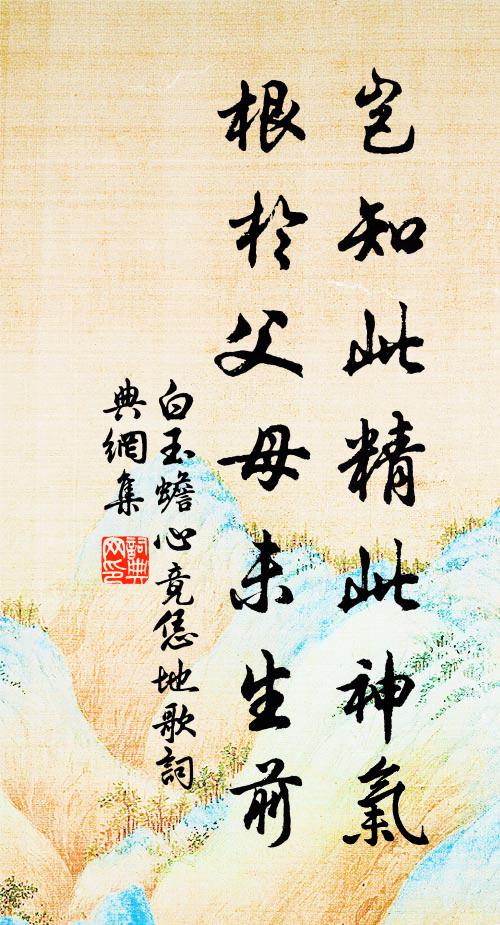 豈知此精此神氣
根於父母未生前
白玉蟾必竟恁地歌詞
典網集
詞典
网印